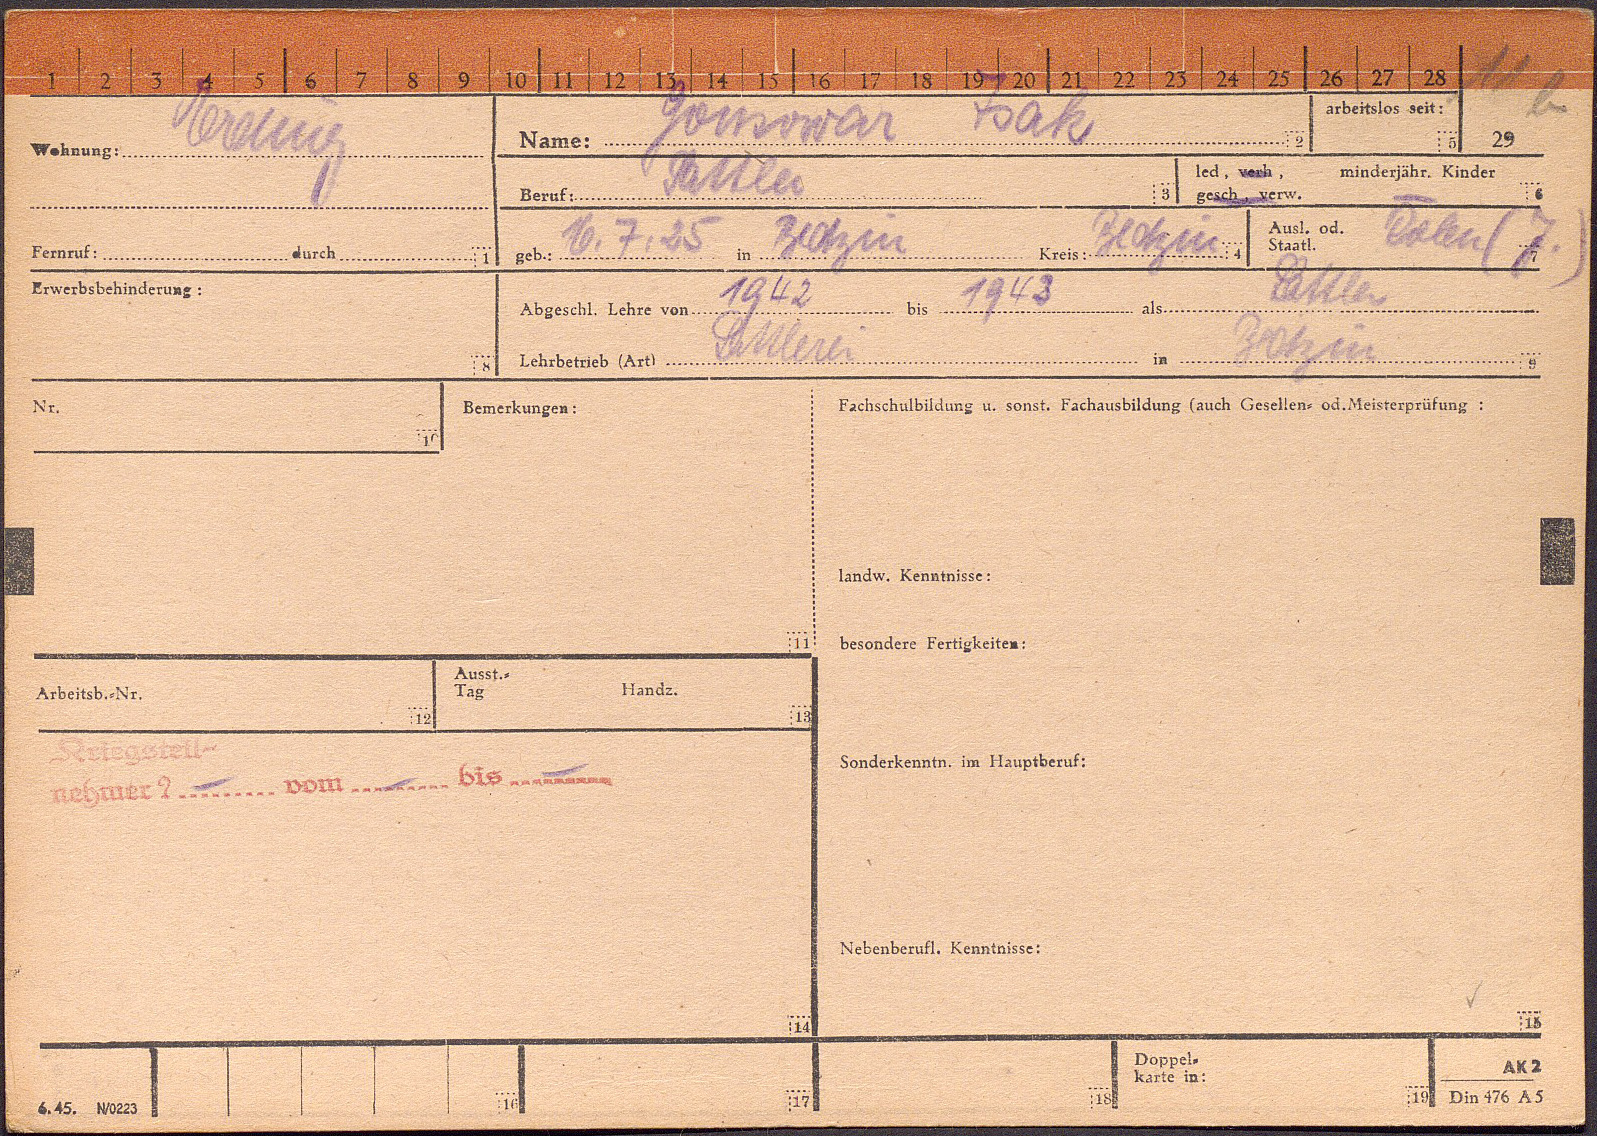 1 2 3 4 5 6 7 8 9 10 11 12 13 14 15 16 17 18 19 20 21 22 23 24 25 26 27 28
Wohnung:
Name: Isak 2
arbeitslos seit: 5 29
Beruf: Sattler 3
led, verh, minderjähr. Kinder
gesch, verw. 6
Fernruf: durch 1
geb.: 16.7.25 in Bedzin Kreis: Bedzin 4
Ausl. od. Staatl. Polen (J.) 7
Erwerbsbehinderung: 8
Abgeschl. Lehre von 1942 bis 1943 als Sattler
Lehrbetrieb (Art) Sattlerei in Bedzin 9
Nr. 10
Bemerkungen: 11
Fachschulbildung u. sonst. Fachausbildung (auch Gesellen- od. Meisterprüfung :
landw. Kenntnisse:
besondere Fertigkeiten:
Arbeitsb.-Nr. 12
Ausst.-Tag Handz. 13
Kriegsteil-
nehmer? vom bis
Sonderkenntn. im Hauptberuf:
Nebenberufl. Kenntnisse:
14
15
6.45. N/0223 16 17 18
Doppel-
karte in: 19
AK2
Din 476 A5